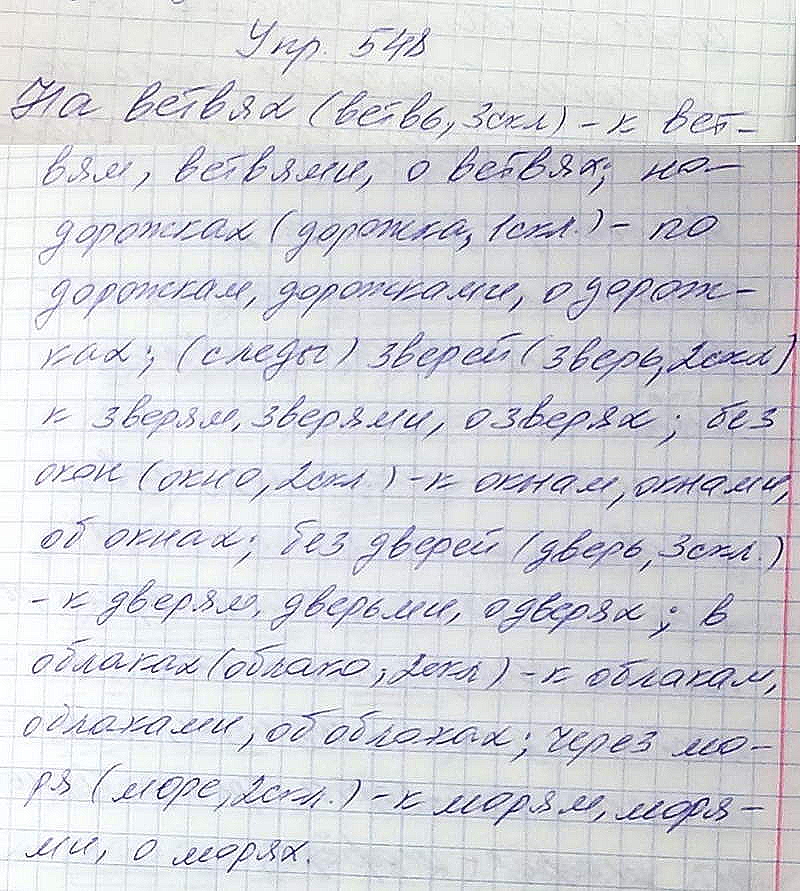 Упр. 548
На ветвях (ветвь, 3скл) - к вет-
вям, ветвями, о ветвях; на-
дорожках (дорожка, 1скл.) - по
дорожкам, дорожками, о дорож-
ках; (следы) зверей (зверь, 2скл)
к зверям, зверями, о зверях; без
окон (окно, 2скл.) - к окнам, окнами,
об окнах; без дверей (дверь, 3скл.)
- к дверям, дверьми, о дверях; в
облаках (облако, 2скл) - к облакам,
облаками, об облаках; через мо-
ря (море, 2скл.) - к морям, моря-
ми, о морях.